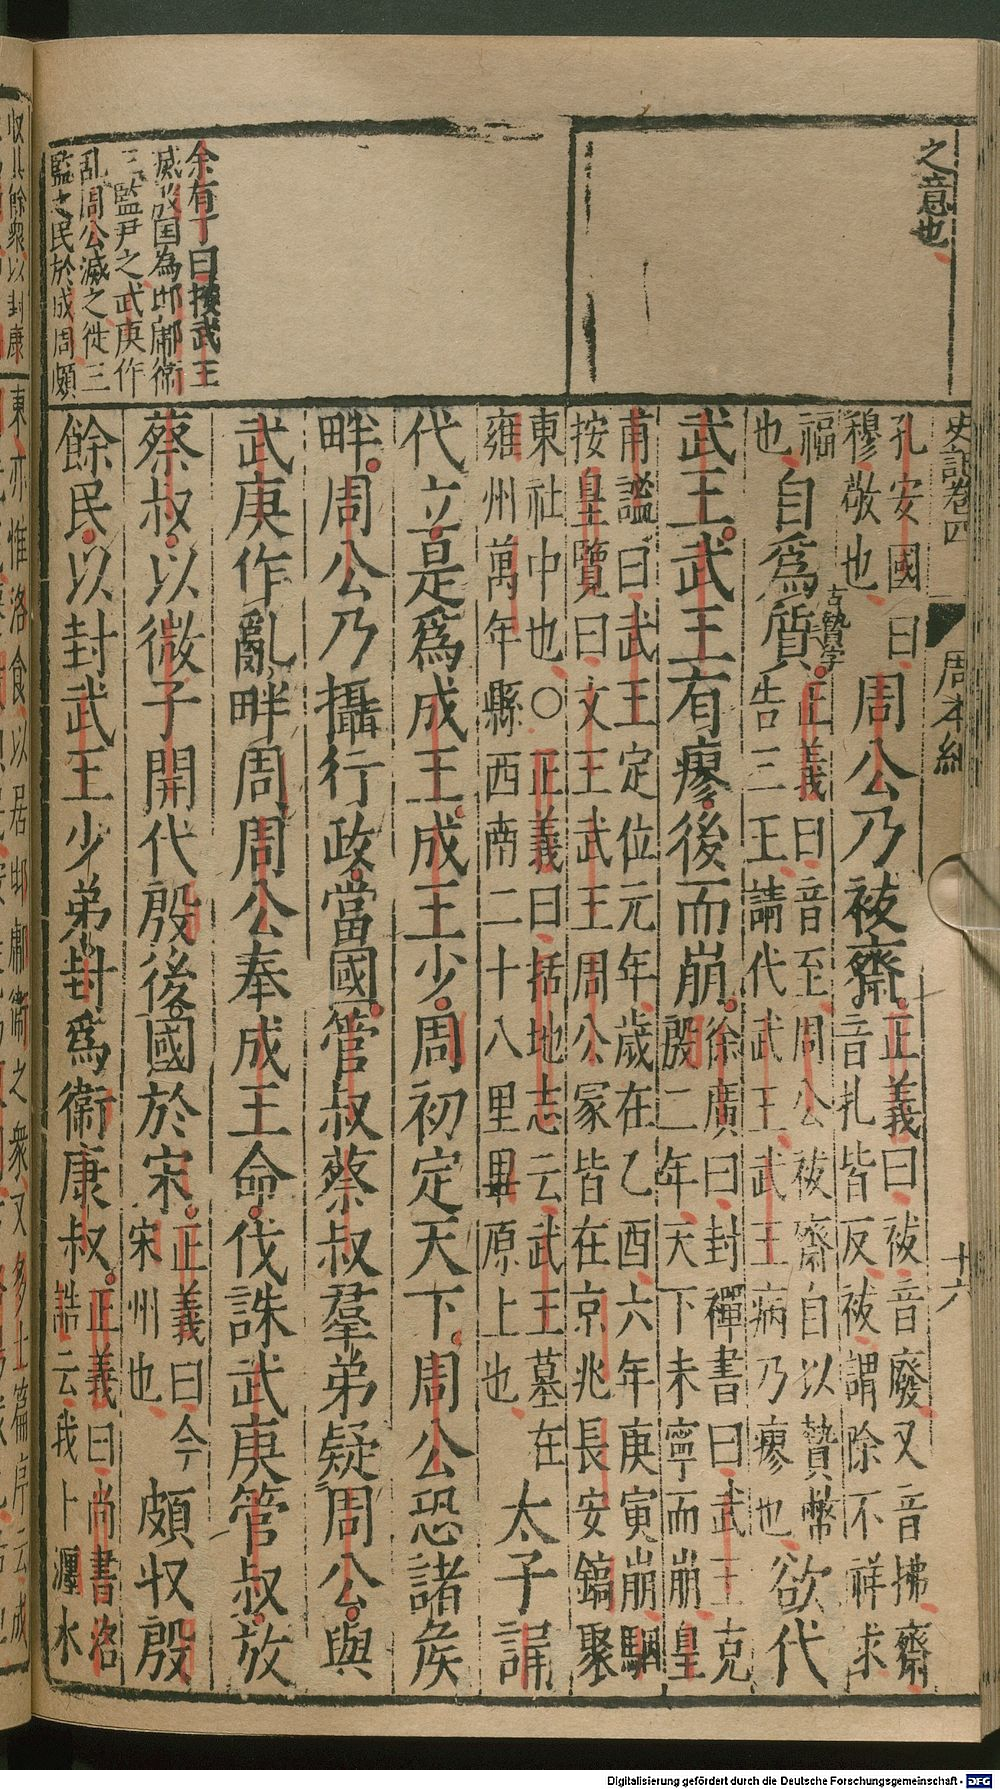 之意也
史記卷四
周本紀
十六
孔安國曰
穆敬也
周公乃祓齋
正義曰祓音廢又音拂齋
音札皆反祓謂除不祥求
福
也
自爲質
古贄字
正義曰音至周公祓齋自以贄幣
告三王請代武王武王病乃瘳也
欲代
武王武王有瘳後而崩
徐廣曰封禪書曰武王克
殷二年天下未寧而崩皇
甫謐曰武王定位元年歲在乙酉六年庚寅崩駰
按皇覽曰文王武王周公冢皆在京兆長安鎬聚
東社中也○正義曰括地志云武王墓在
雍州萬年縣西南二十八里畢原上也
太子誦
代立是爲成王成王少周初定天下周公恐諸侯
畔周公乃攝行政當國管叔蔡叔羣弟疑周公與
武庚作亂畔周周公奉成王命伐誅武庚管叔放
蔡叔以微子開代殷後國於宋
正義曰今
宋州也
頗收殷
餘民以封武王少弟封爲衛康叔
正義曰尚書洛
誥云我卜瀍水
余有丁曰按武王
滅殷国為邶鄘衛
三監尹之武庚作
乱周公滅之徙三
監之民於成周頗
收其餘衆以封康
東亦惟洛食以居邶鄘衛之衆又多士篇序云成
Digitalisierung gefördert durch die Deutsche Forschungsgemeinschaft - DFG